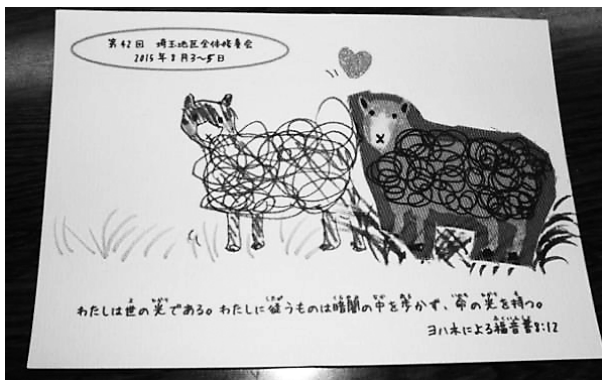 第42回 埼玉地区全体修養会
2015年8月3〜5日
わたしは世の光である。わたしに従うものは暗闇の中を歩かず、命の光を持つ。
ヨハネによる福音書8:12